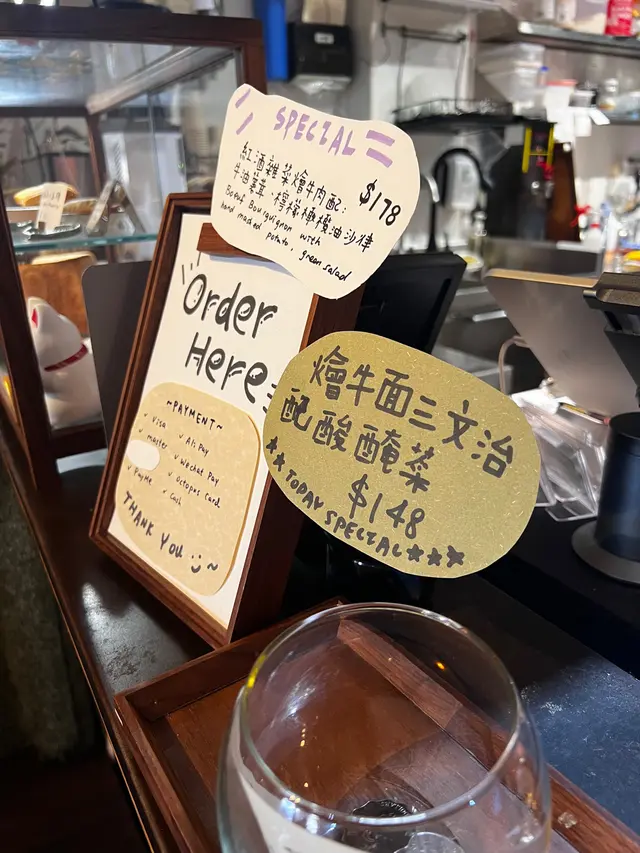 SPECIAL
紅酒雜菜燴牛肉配:
牛油薯蓉、檸檬橄欖油沙律
$178
Boeuf Bourguignon with
hand mashed potato, green salad
Order
Here
~PAYMENT~
✓ Visa
✓ Ali Pay
✓ master
✓ Wechat Pay
✓ Octopus Card
✓ PayMe
✓ Cash
THANK YOU
燴牛面三文治
配酸醃菜
$148
★★TODAY SPECIAL★★★